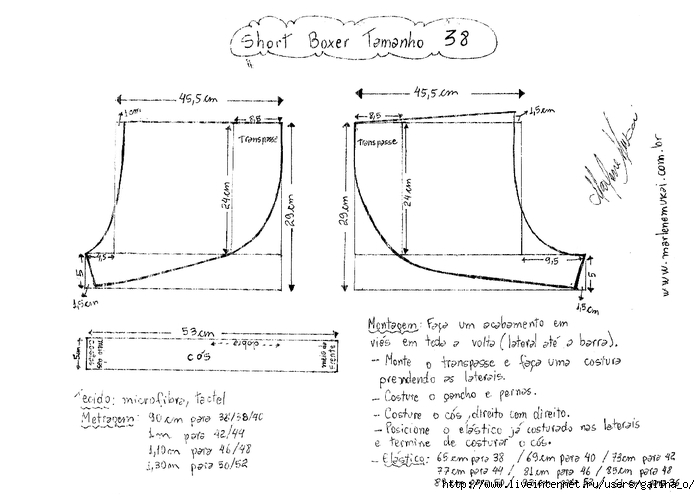 Short Boxer Tamanho 38
45,5cm
1cm
8,5
Transpasse
24cm
29cm
9,5
5
1,5cm
45,5cm
1,5cm
8,5
Transpasse
29cm
24cm
9,5
5
1,5cm
www.marlenemukai.com.br
53cm
5cm
cós
dobra
meio da
frente
Tecido: microfibra, tactel
Metragem: 90cm para 36/38/40
1m para 42/44
1,10cm para 46/48
1,30cm para 50/52
Montagem: Faça um acabamento em
viés em toda a volta (lateral até a barra).
- Monte o transpasse e faça uma costura
prendendo as laterais.
- Costure o gancho e pernas.
- Costure o cós, direito com direito.
- Posicione o elástico já costurado nas laterais
e termine de costurar o cós.
- Elástico: 65cm para 38 / 69cm para 40 / 73cm para 42
77cm para 44 / 81cm para 46 / 85cm para 48
http://www.liveinternet.ru/users/galinka_o/